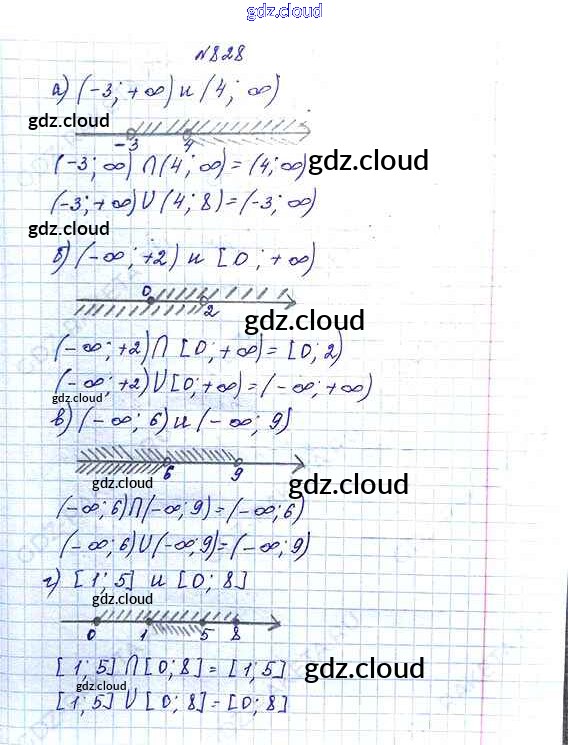 gdz.cloud
№828
а) (-3; +∞) и (4; ∞)
gdz.cloud
-3 4
gdz.cloud
(-3; ∞) ∩ (4; ∞) = (4; ∞)
(-3; +∞) U (4; 8) = (-3; ∞)
gdz.cloud
б) (-∞; +2) и [0; +∞)
0 2
gdz.cloud
(-∞; +2) ∩ [0; +∞) = [0; 2)
(-∞; +2) U [0; +∞) = (-∞; +∞)
gdz.cloud
в) (-∞; 6) и (-∞; 9)
6 9
gdz.cloud
(-∞; 6) ∩ (-∞; 9) = (-∞; 6)
(-∞; 6) U (-∞; 9) = (-∞; 9)
г) [1; 5] и [0; 8]
gdz.cloud
0 1 5 8
[1; 5] ∩ [0; 8] = [1; 5]
gdz.cloud
gdz.cloud
[1; 5] U [0; 8] = [0; 8]